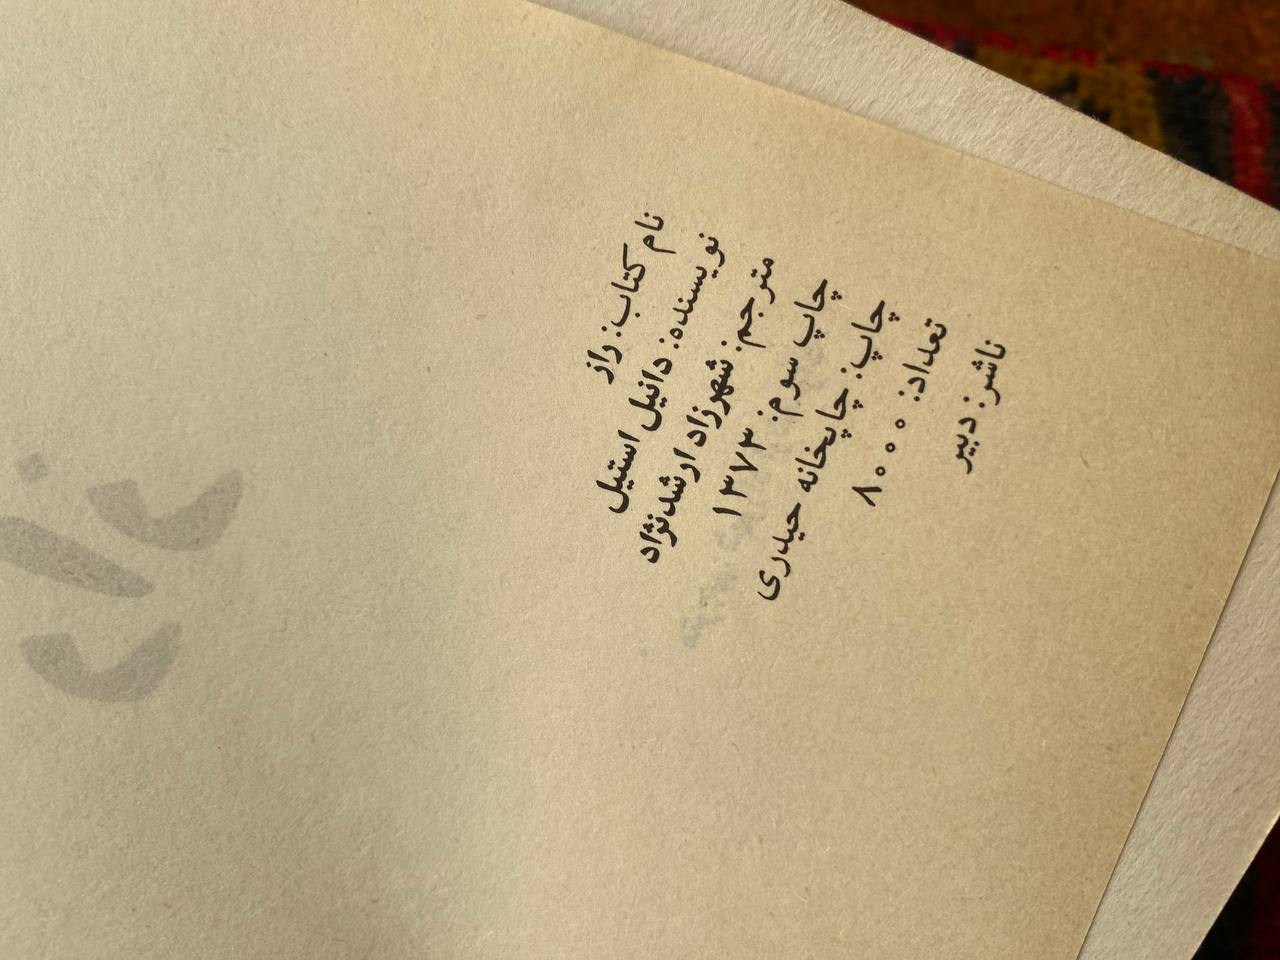 نام کتاب: راز
نویسنده: دانیل استیل
مترجم: شهرزاد ارشدنژاد
چاپ سوم: ۱۳۷۳
چاپ: چاپخانه حیدری
تعداد: ۸۰۰۰
ناشر: دبیر